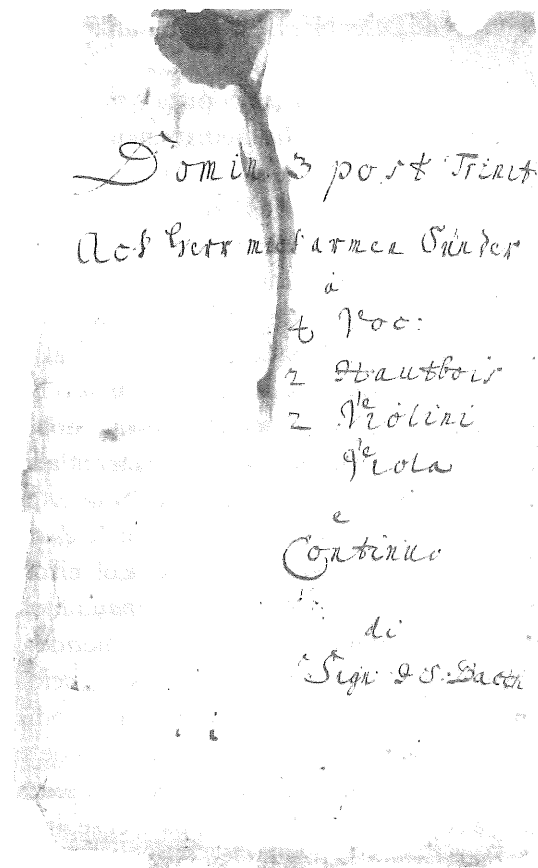 Domin. 3 post Trinit
Ach Herr mich armen Sünder
a
4 Voc:
2 Hautbois
2 Violini
Viola
e
Continuo
di
Sign: J. S. Bach